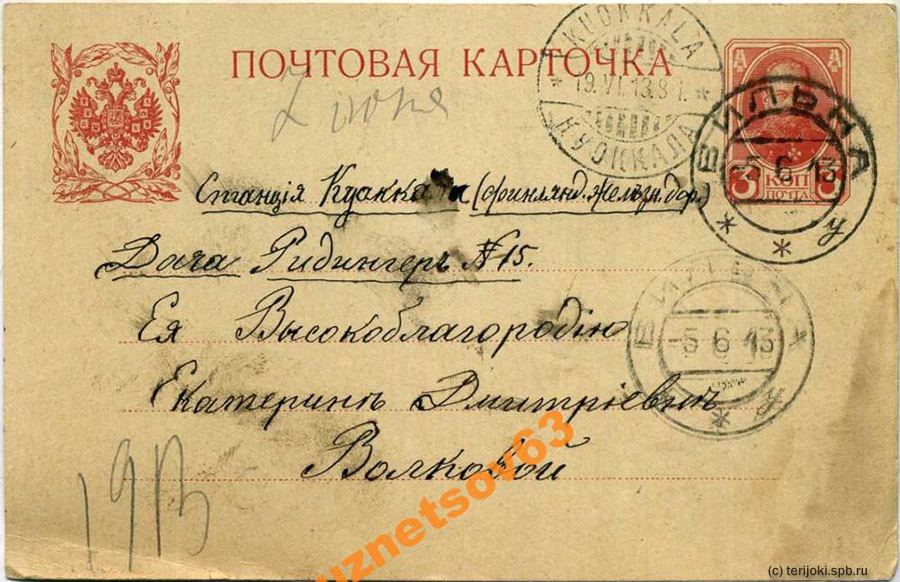 ПОЧТОВАЯ КАРТОЧКА
KUOKKALA
19.VI.13.8 і.
КУОККАЛА
А А
3 КОП 3
ПОЧТА
ВИЛЬНА
-5 6 13
у
Станція Куоккала (Финлянд. Желѣзн. дор.)
Дача Ридингеръ №15.
Ея Высокоблагородію
ВИЛЬНА
-5 6 13
у
Екатеринѣ Дмитріевнѣ
Волковой
1913
uznetsov63
(c) terijoki.spb.ru